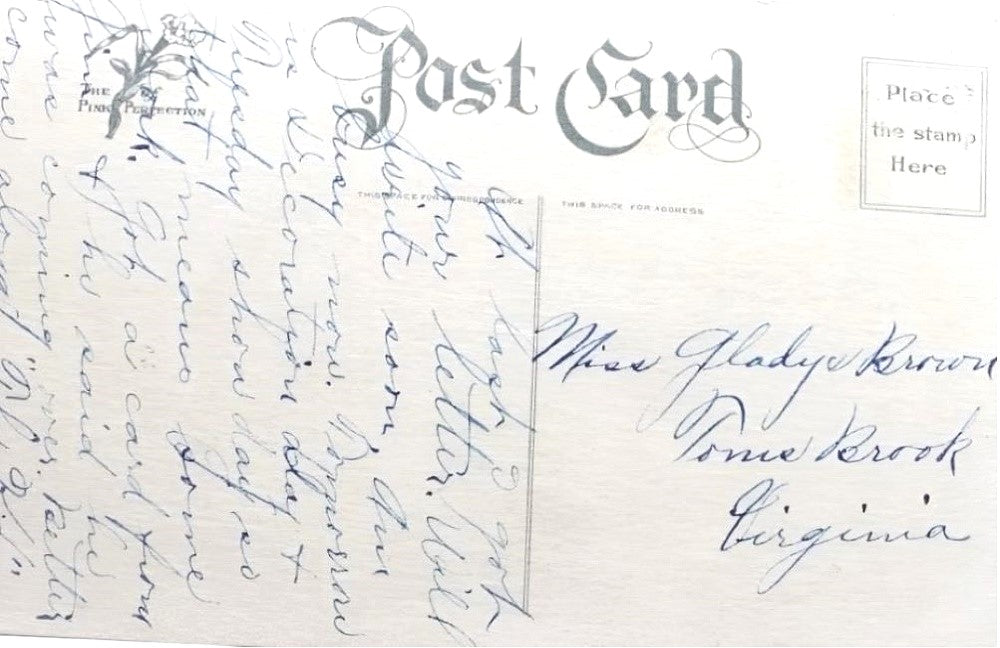 Post Card
THE PINK OF PERFECTION
Place
the stamp
Here
THIS SPACE FOR CORRESPONDENCE
THIS SPACE FOR ADDRESS
At last I got
your letter. Will
write soon. Am
busy now. Tomorrow
is Decoration day +
Tuesday show day so
that means some
work. Got a card from
& he said he
was coming over. Better
come along
Miss Gladys Brown
Toms Brook
Virginia